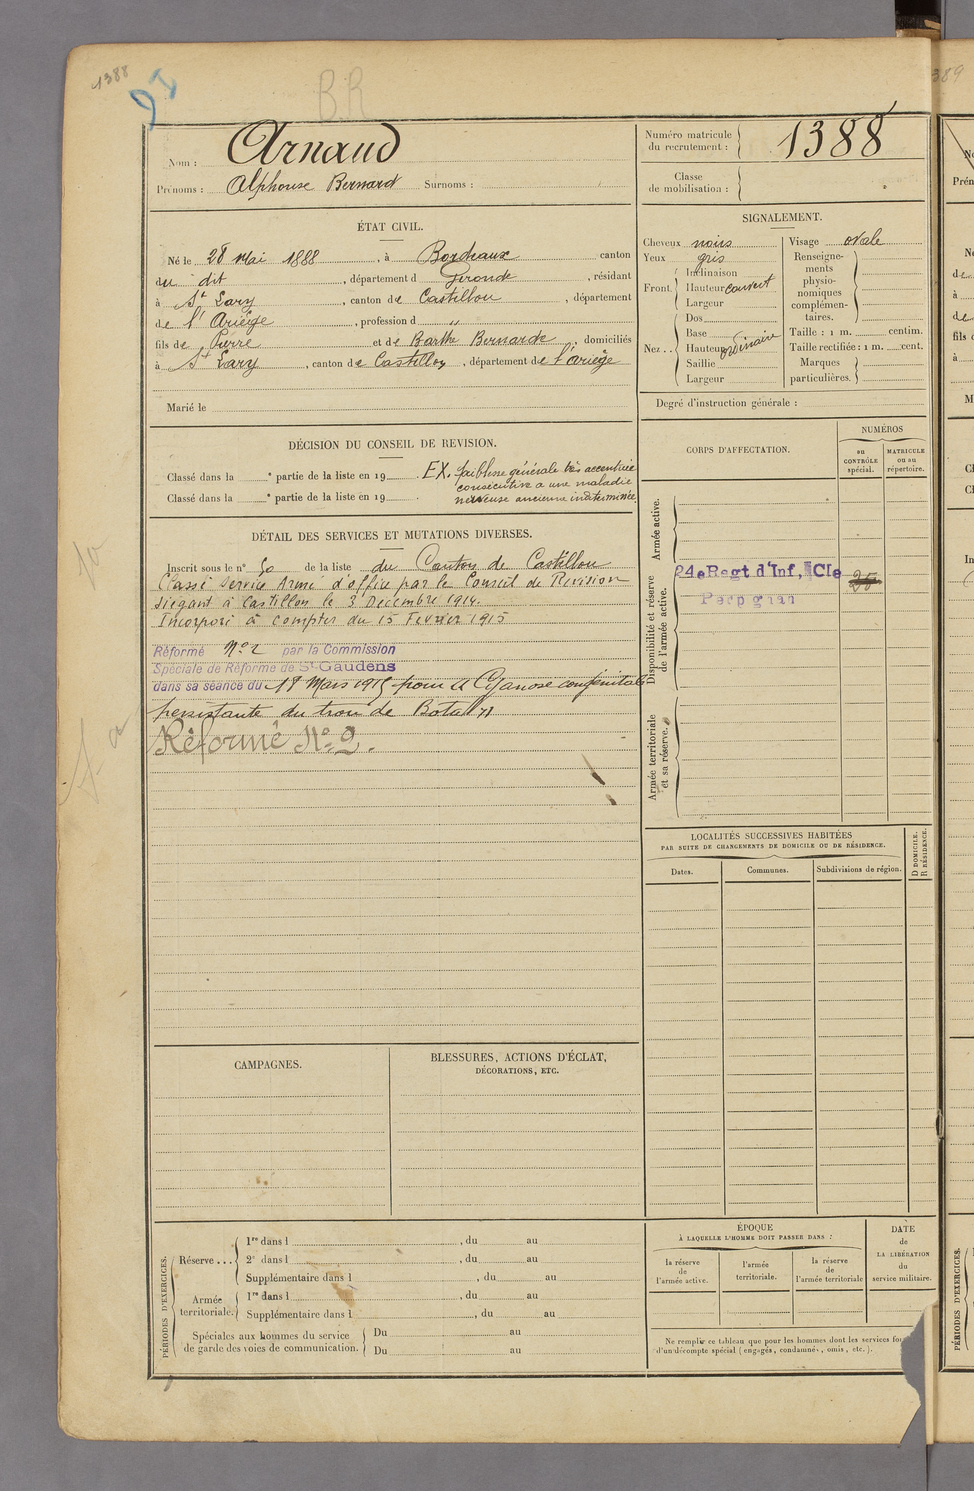 1388
BR
Nom : Arnaud
Prénoms : Alphonse Bernard Surnoms :
Numéro matricule du recrutement : 1388
Classe de mobilisation :
ÉTAT CIVIL.
Né le 28 Mai 1888, à Bordeaux canton
du dit, département d Gironde, résidant
à St Lary, canton de Castillon, département
de l'Ariège, profession d "
fils de Pierre et de Barthe Bernarde, domiciliés
à St Lary, canton de Castillon, département de l'Ariège
Marié le
SIGNALEMENT.
Cheveux noirs
Yeux gris
Front. Inclinaison
Hauteur couvert
Largeur
Nez.. Dos
Base
Hauteur ordinaire
Saillie
Largeur
Visage ovale
Renseignements physionomiques complémentaires.
Taille : 1 m. centim.
Taille rectifiée : 1 m. cent.
Marques particulières.
Degré d'instruction générale :
DÉCISION DU CONSEIL DE REVISION.
Classé dans la e partie de la liste en 19 .
Classé dans la e partie de la liste en 19 .
EX. faiblesse générale très accentuée
consécutive à une maladie
nerveuse ancienne indéterminée
DÉTAIL DES SERVICES ET MUTATIONS DIVERSES.
Inscrit sous le n° 50 de la liste du Canton de Castillon
Classé Service Armé d'office par le Conseil de Revision
siégant à Castillon le 3 Décembre 1914.
Incorporé à compter du 15 Fevrier 1915
Réformé N° 2 par la Commission
Spéciale de Réforme de St Gaudens
dans sa séance du 18 Mars 1915 pour "Cyanose congénitale
persistante du trou de Botal"
Réformé N° 2.
CORPS D'AFFECTATION.
NUMÉROS
au CONTRÔLE spécial.
MATRICULE ou au répertoire.
Armée active.
Disponibilité et réserve de l'armée active.
24e Regt d'Inf, CIe
Perpignan
Armée territoriale et sa réserve.
LOCALITÉS SUCCESSIVES HABITÉES
PAR SUITE DE CHANGEMENTS DE DOMICILE OU DE RÉSIDENCE.
Dates.
Communes.
Subdivisions de région.
D DOMICILE.
R RÉSIDENCE.
CAMPAGNES.
BLESSURES, ACTIONS D'ÉCLAT,
DÉCORATIONS, ETC.
PÉRIODES D'EXERCICES.
Réserve ... 1re dans l , du au
2e dans l , du au
Supplémentaire dans l , du au
Armée territoriale. 1re dans l , du au
Supplémentaire dans l , du au
Spéciales aux hommes du service
de garde des voies de communication.
Du au
Du au
ÉPOQUE
À LAQUELLE L'HOMME DOIT PASSER DANS :
la réserve de l'armée active.
l'armée territoriale.
la réserve de l'armée territoriale
DATE DE LA LIBÉRATION du service militaire.
Ne remplir ce tableau que pour les hommes dont les services
d'un décompte spécial (engagés, condamnés, omis, etc.).